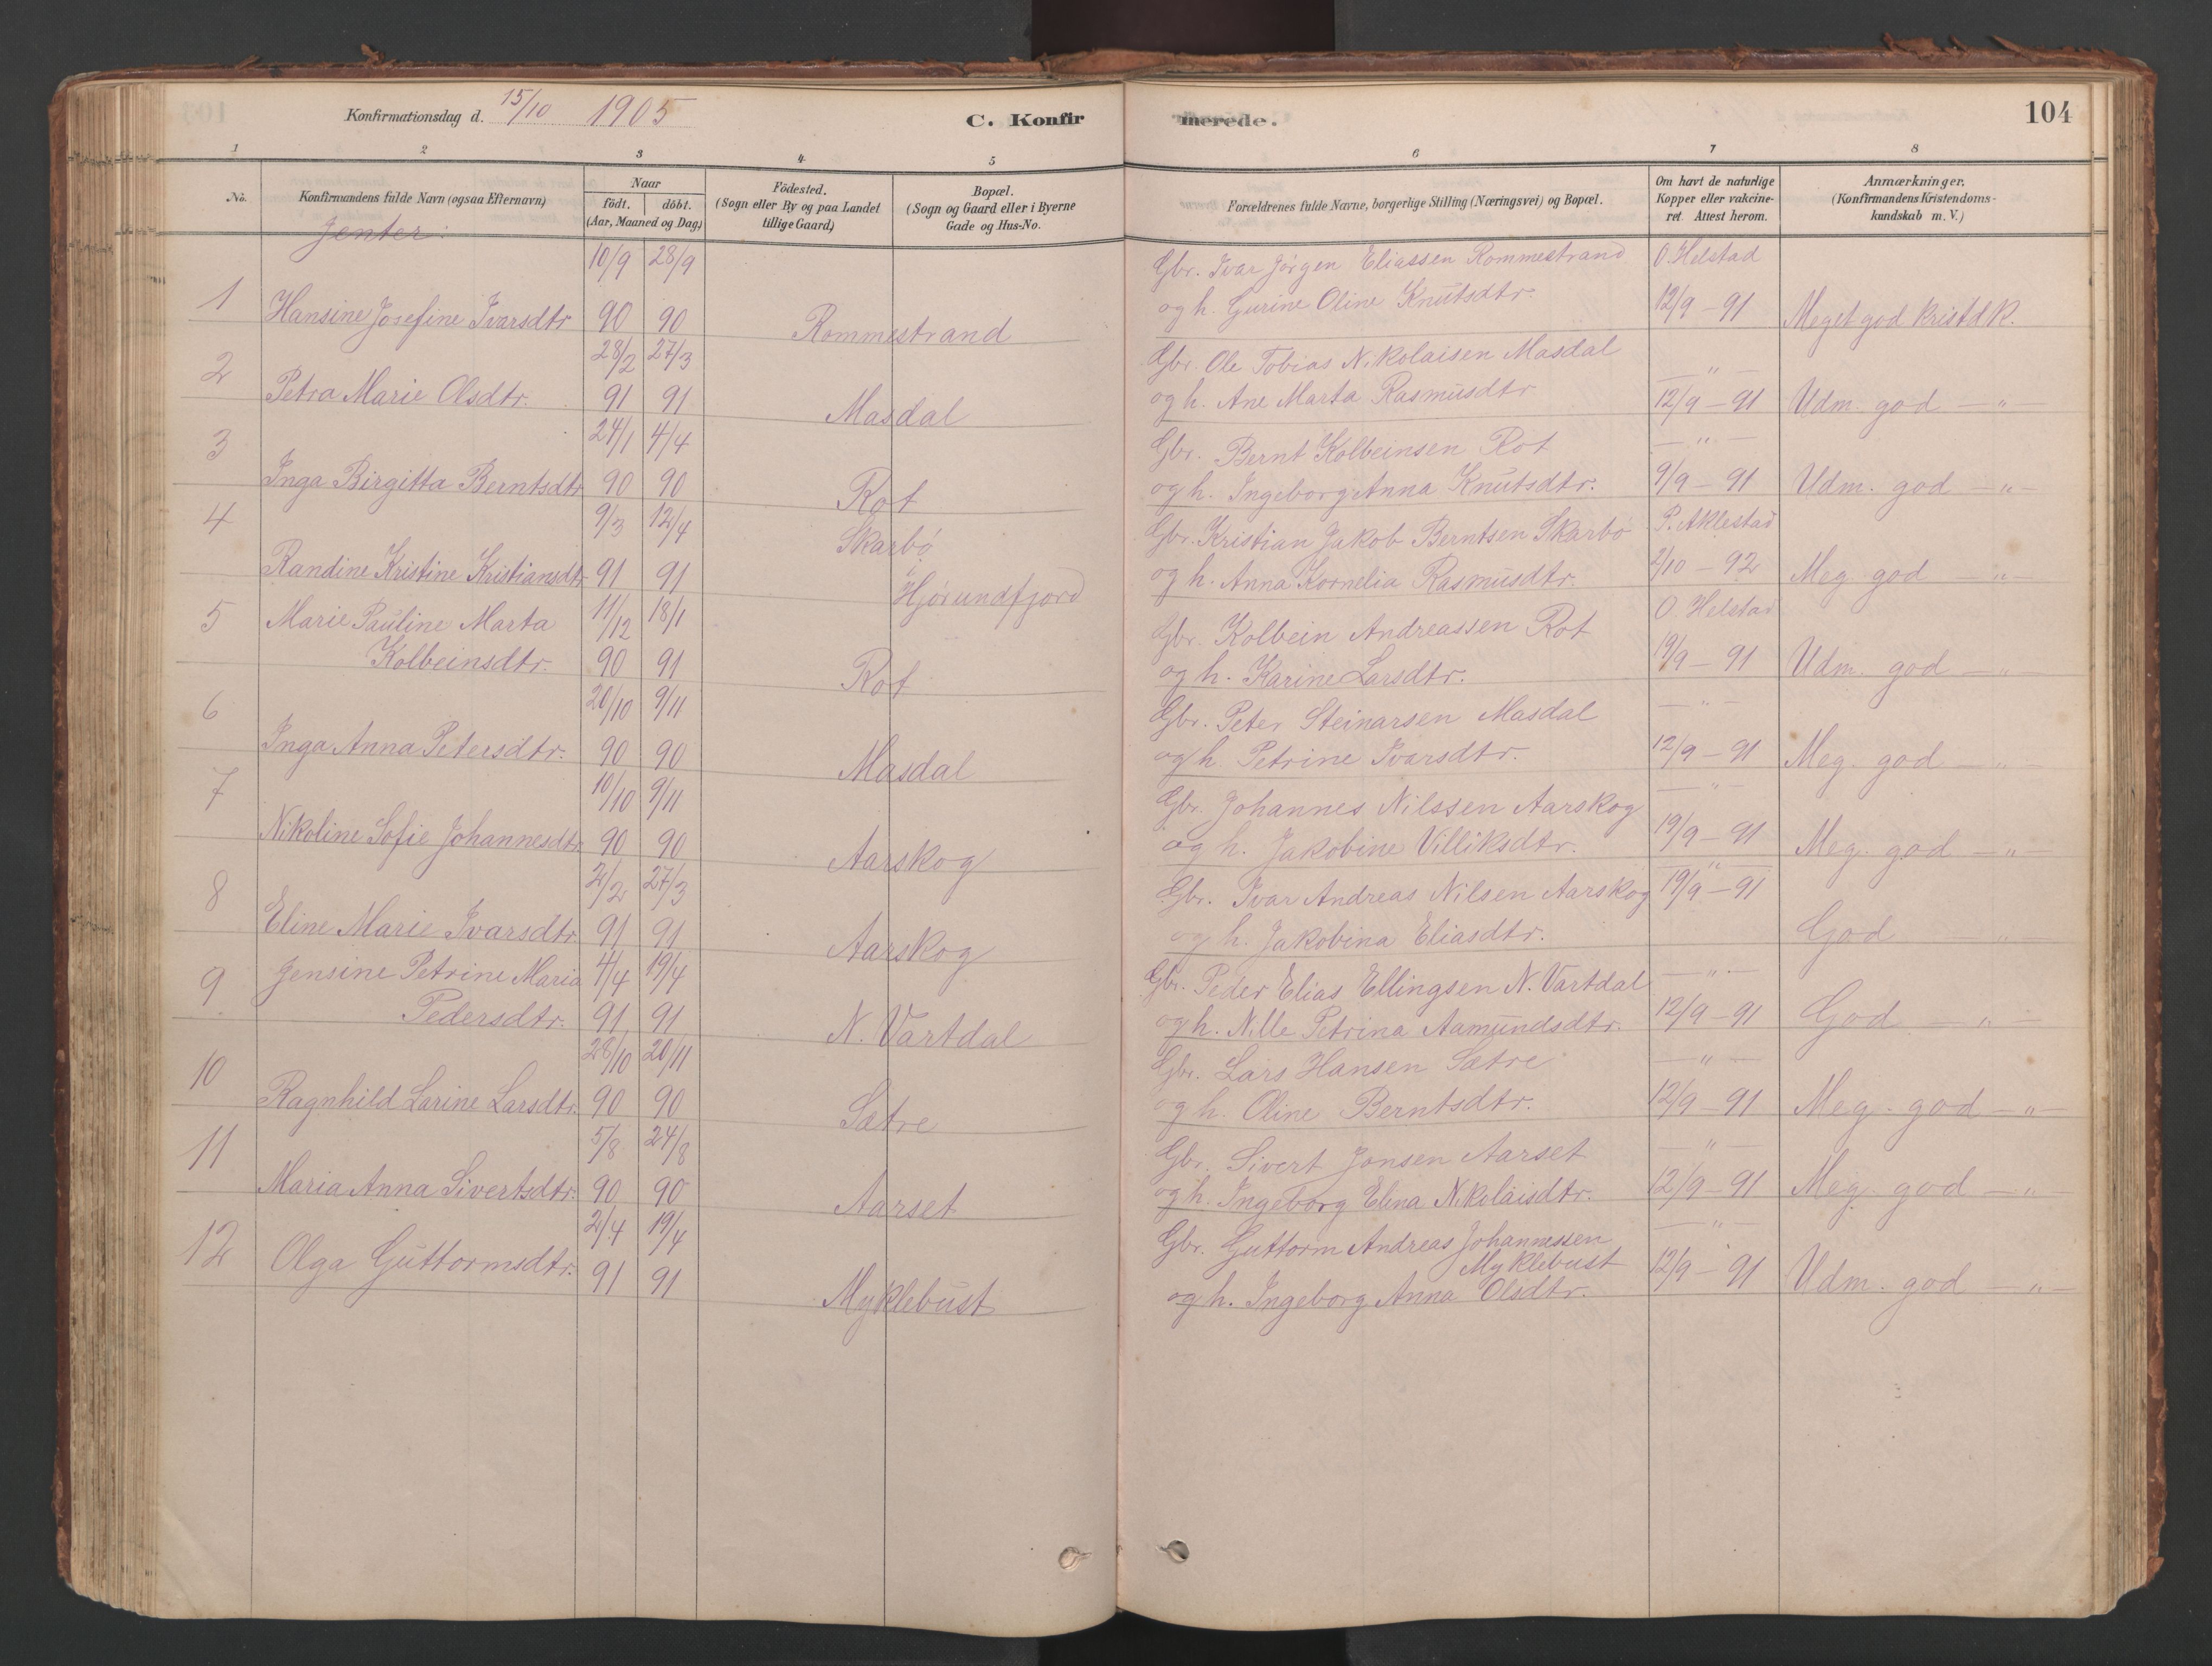 Konfirmationsdag d. 15/10 1905
C. Konfirmerede.
104
1 2 3 4 5 6 7 8
No.
Konfirmandens fulde Navn (ogsaa Efternavn)
Naar
födt. döbt.
(Aar, Maaned og Dag)
Födested.
(Sogn eller By og paa Landet
tillige Gaard)
Bopæl.
(Sogn og Gaard eller i Byerne
Gade og Hus-No.
Forældrenes fulde Navne, borgerlige Stilling (Næringsvei) og Bopæl.
Om havt de naturlige
Kopper eller vakcine-
ret. Attest herom.
Anmærkninger,
(Konfirmandens Kristendoms-
kundskab m. V.)
Jenter:
10/9 28/9 Gbr. Ivar Jörgen Eliassen Rommestrand O. Helstad
1 Hansine Josefine Ivarsdtr 90 90 Rommestrand og h. Gurine Oline Knutsdtr. 12/9 - 91 Meget god kristd k.
28/2 27/3 Gbr. Ole Tobias Nikolaisen Masdal — " —
2 Petra Marie Olsdtr. 91 91 Masdal og h. Ane Marta Rasmusdtr 12/9 - 91 Udm. god — "
24/1 4/4 Gbr. Bernt Kolbeinsen Rot — " —
3 Inga Birgitta Berntsdtr 90 90 Rot og h. Ingeborg Anna Knutsdtr. 9/9 - 91 Udm. god — " —
9/3 12/4 Skarbö Gbr. Kristian Jakob Berntsen Skarbö P. Aklestad
4 Randine Kristine Kristiansdtr 91 91 Hjörundfjord og h. Anna Kornelia Rasmusdtr. 2/10 - 92 Meg. god — " —
5 Marie Pauline Marta 11/12 18/1 Gbr. Kolbein Andreassen Rot O. Helstad
Kolbeinsdtr. 90 91 Rot og h. Karine Larsdtr. 19/9 - 91 Udm. god — "
20/10 9/11 Gbr. Peter Steinarsen Masdal — " —
6 Inga Anna Petersdtr. 90 90 Masdal og h. Petrine Ivarsdtr. 12/9 - 91 Meg. god — " —
10/10 9/11 Gbr. Johannes Nilssen Aarskog — " —
7 Nikoline Sofie Johannesdtr 90 90 Aarskog og h. Jakobine Villiksdtr. 19/9 - 91 Meg. god — " —
2/2 27/3 Gbr. Ivar Andreas Nilsen Aarskog 19/9 - 91
8 Eline Marie Ivarsdtr 91 91 Aarskog og h. Jakobina Eliasdtr. God "
9 Jensine Petrine Maria 4/4 19/4 Gbr. Peder Elias Ellingsen N. Vartdal — " —
Pedersdtr. 91 91 N. Vartdal og h. Nille Petrina Aamundsdtr. 12/9 - 91 God — " —
28/10 20/11 Gbr. Lars Hansen Sætre — " —
10 Ragnhild Larine Larsdtr. 90 90 Sætre og h. Oline Berntsdtr. 12/9 - 91 Meg. god — " —
5/8 24/8 Gbr. Sivert Jonsen Aarset — " —
11 Maria Anna Sivertsdtr. 90 90 Aarset og h. Ingeborg Elina Nikolaisdtr. 12/9 - 91 Meg. god — " —
2/4 19/4 Gbr. Guttorm Andreas Johannessen — " —
12 Olga Guttormsdtr. Myklebust 12/9 - 91
91 91 Myklebust og h. Ingeborg Anna Olsdtr. Udm. god — " —